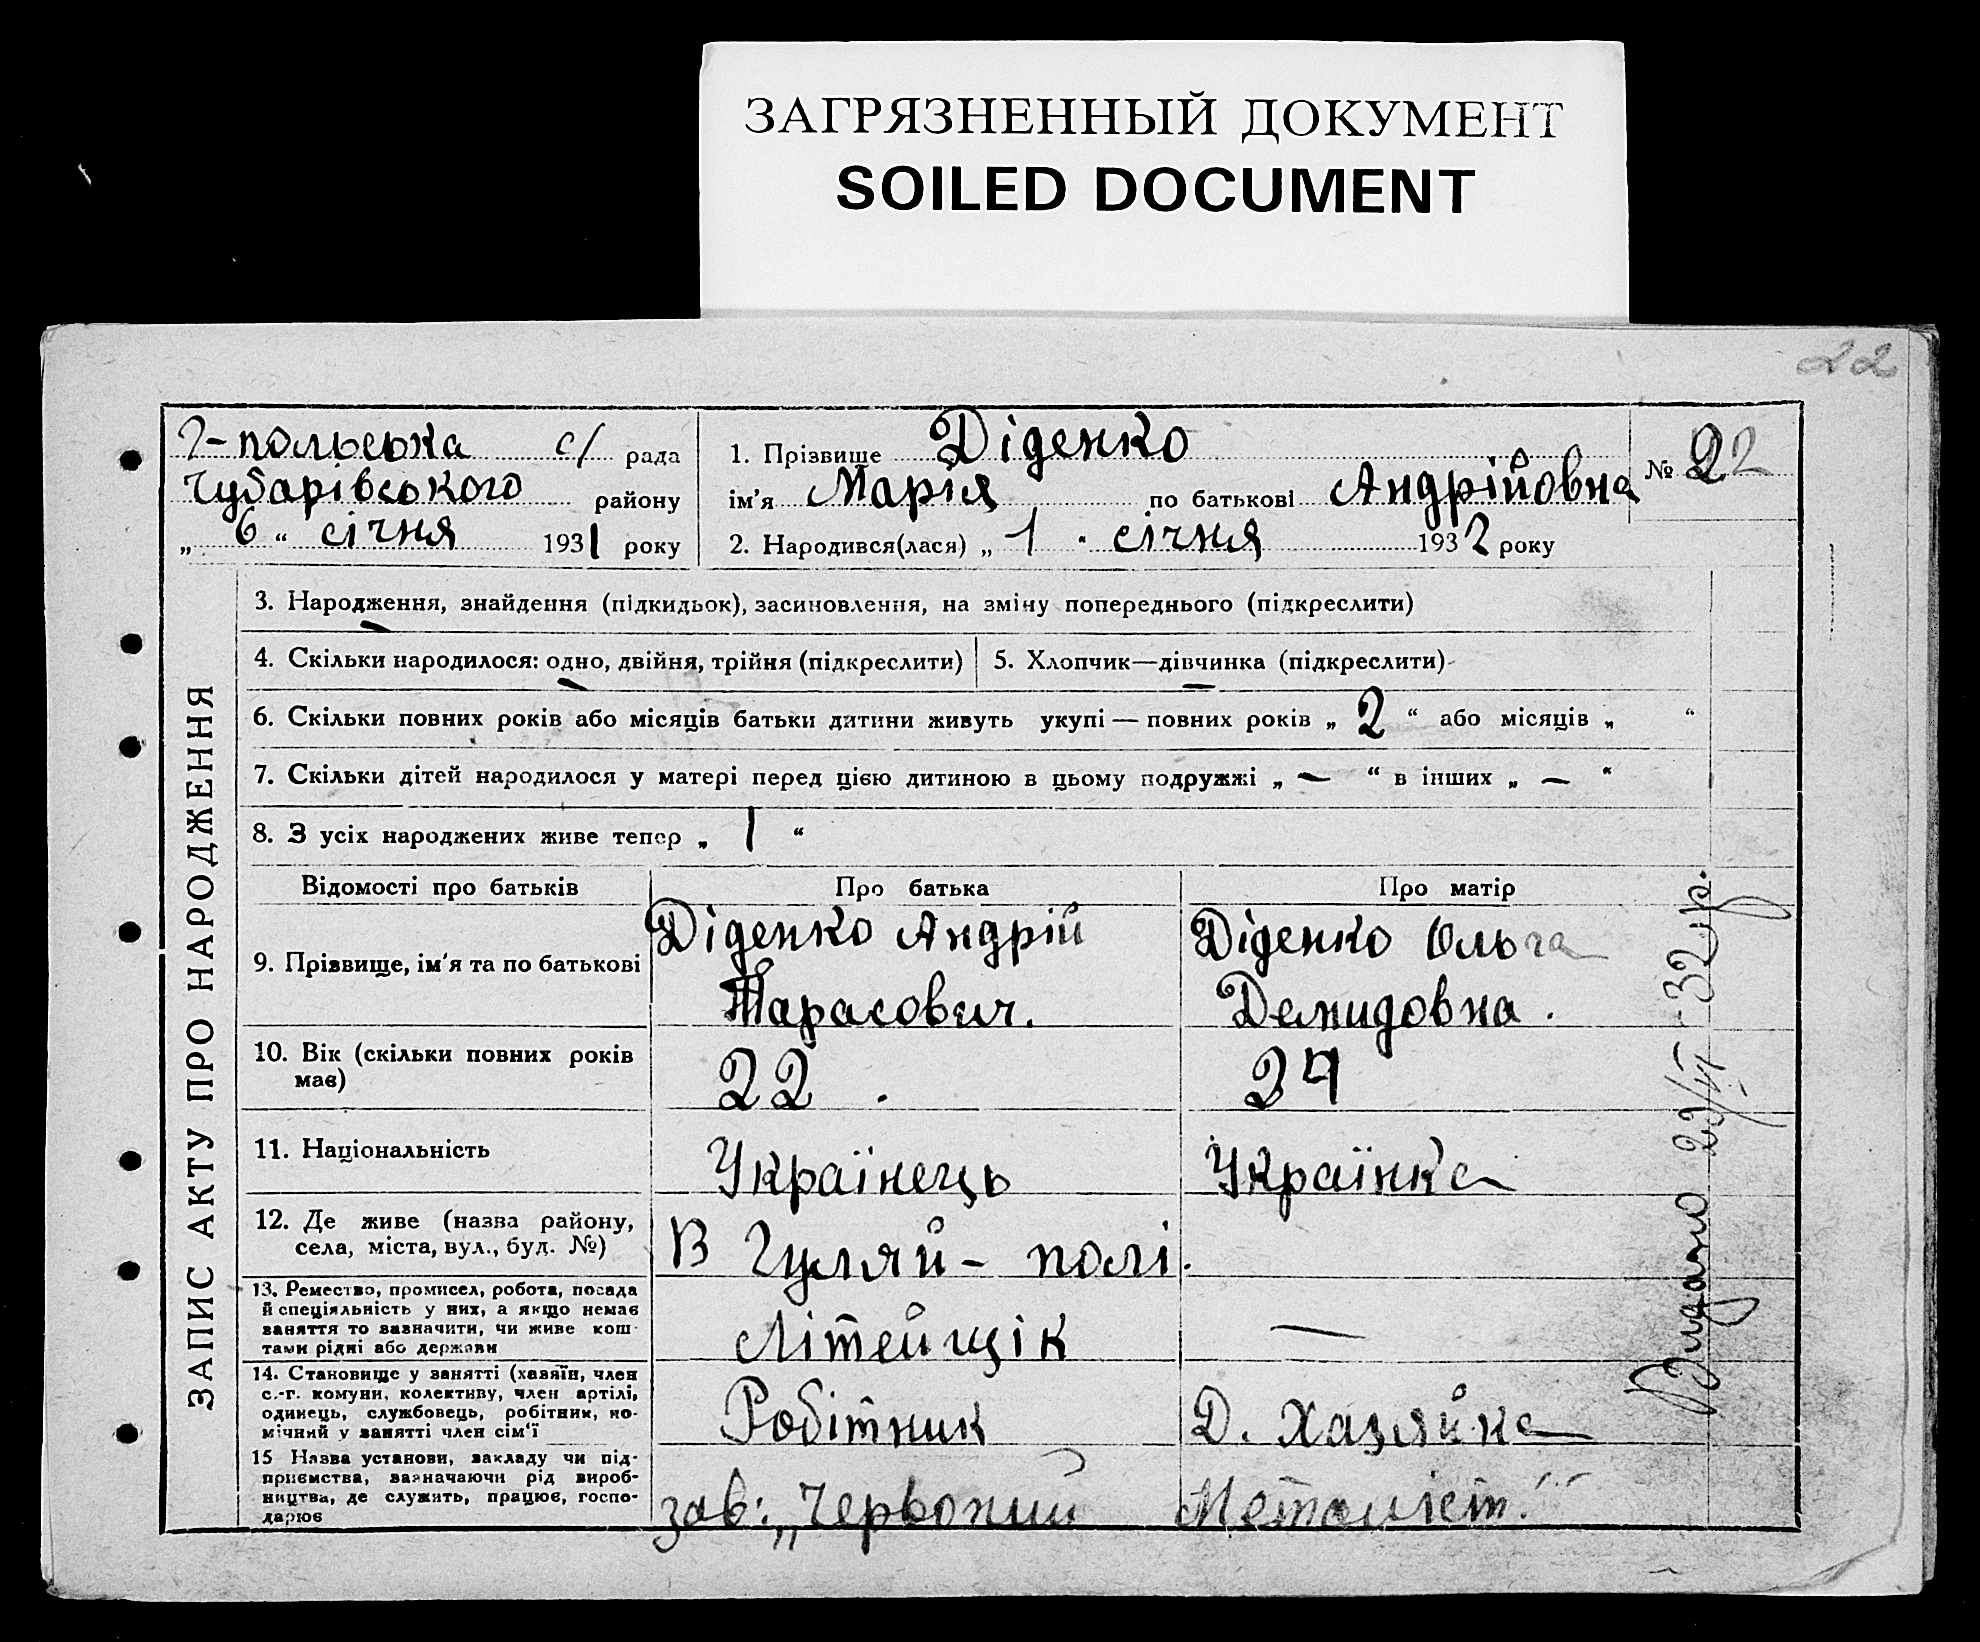 ЗАГРЯЗНЕННЫЙ ДОКУМЕНТ
SOILED DOCUMENT
22
Г-польська с/ рада
Чубарівського району
„ 6 “ січня 1931 року
1. Прізвище Діденко
ім'я Марія по батькові Андрійовна
№ 22
2. Народився(лася) „ 1 . січня 1932 року
ЗАПИС АКТУ ПРО НАРОДЖЕННЯ
3. Народження, знайдення (підкидьок), засиновлення, на зміну попереднього (підкреслити)
4. Скільки народилося: одно, двійня, трійня (підкреслити)
5. Хлопчик—дівчинка (підкреслити)
6. Скільки повних років або місяців батьки дитини живуть укупі — повних років „ 2 “ або місяців „ “
7. Скільки дітей народилося у матері перед цією дитиною в цьому подружжі „ — “ в інших „ — “
8. З усіх народжених живе тепер „ 1 “
Відомості про батьків
Про батька
Про матір
9. Прізвище, ім'я та по батькові
Діденко Андрій
Тарасович.
Діденко Ольга
Демидовна .
10. Вік (скільки повних років
має)
22 .
24
11. Національність
Українець
Українка
12. Де живе (назва району,
села, міста, вул., буд. №)
В Гуляй - полі.
13. Ремество, промисел, робота, посада
й спеціяльність у них, а якщо немає
заняття то зазначити, чи живе кош-
тами рідні або держави
Літейщік
—
14. Становище у занятті (хазяїн, член
с.-г. комуни, колективу, член артілі,
одинець, службовець, робітник, по-
мічний у занятті член сім'ї
Робітник
Д. Хазяйка
15 Назва установи, закладу чи під-
приємства, зазначаючи рід вироб-
ництва, де служить, працює, госпо-
дарює
зав: „Червоний Металіст."
Видано 23/VI-32р.